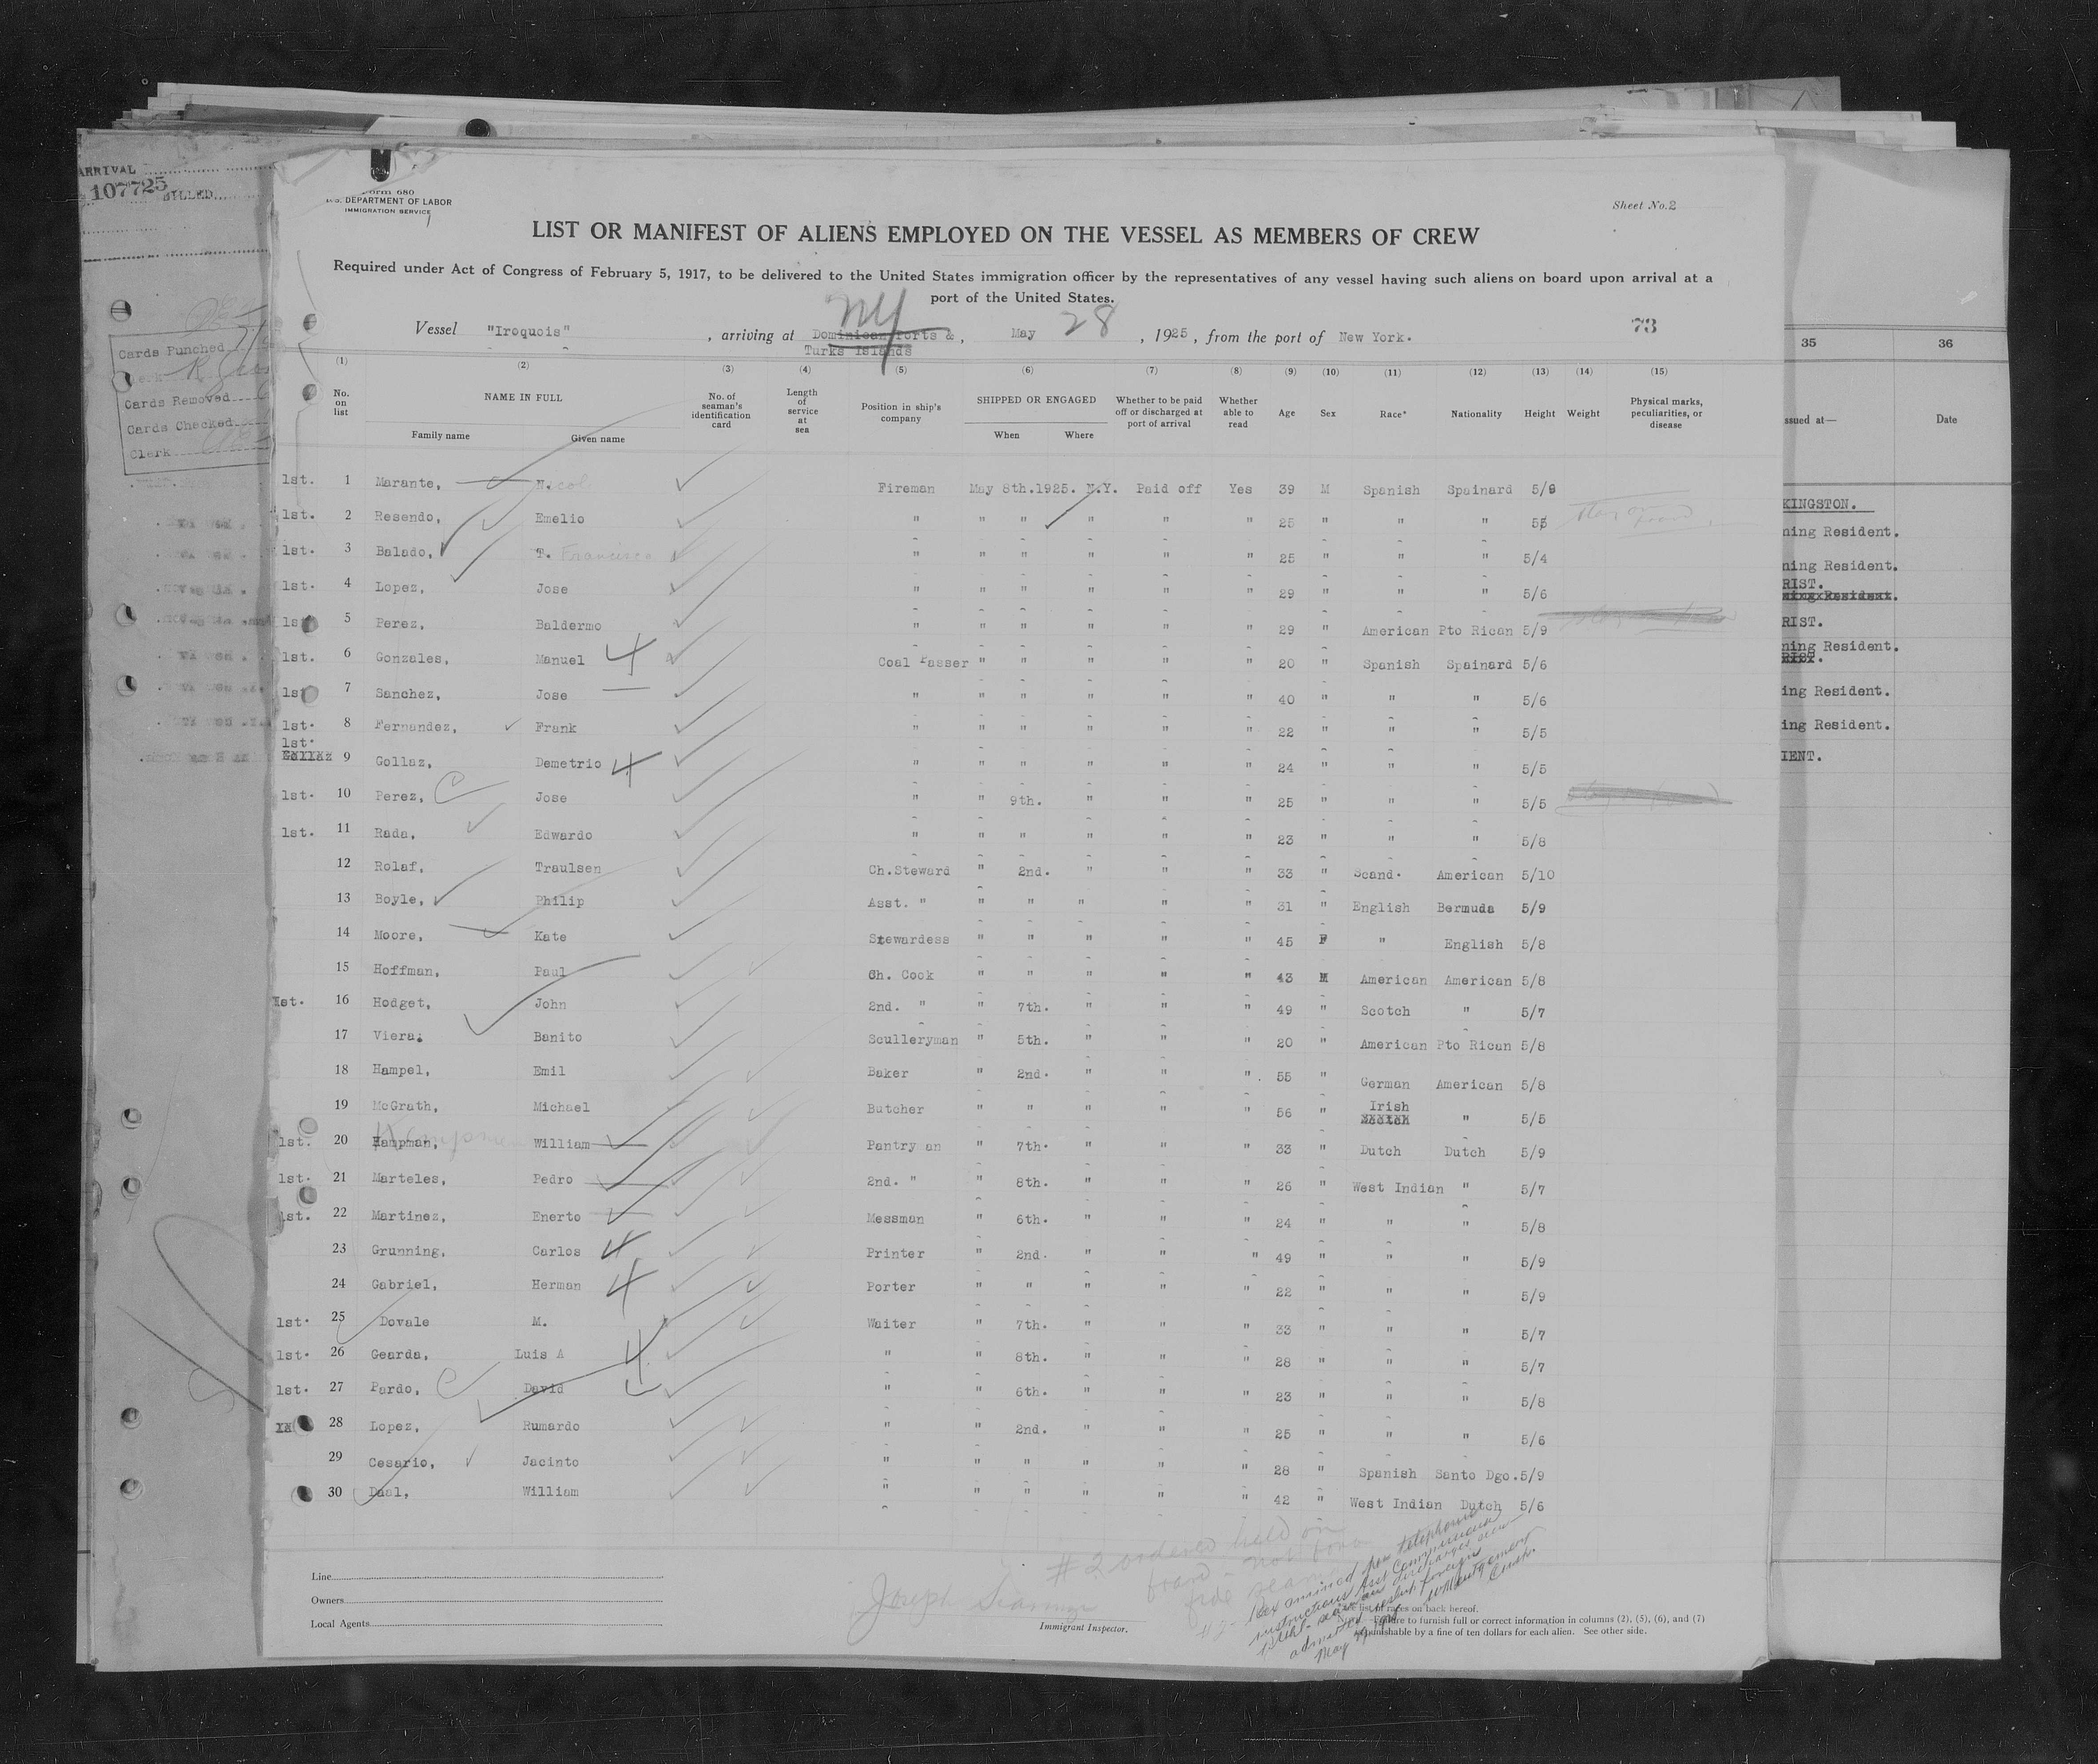 ARRIVAL
107725
BILLED
Cards Punched
Cards Removed
Cards Checked
Clerk
Form 680
U.S. DEPARTMENT OF LABOR
IMMIGRATION SERVICE
Sheet No. 2
LIST OR MANIFEST OF ALIENS EMPLOYED ON THE VESSEL AS MEMBERS OF CREW
Required under Act of Congress of February 5, 1917, to be delivered to the United States immigration officer by the representatives of any vessel having such aliens on board upon arrival at a
port of the United States.
NY
Vessel "Iroquois" , arriving at Dominican Ports & , May 28 , 1925, from the port of New York. 73
Turks Islands
(1) (2) (3) (4) (5) (6) (7) (8) (9) (10) (11) (12) (13) (14) (15)
No. on list NAME IN FULL No. of seaman's identification card Length of service at sea Position in ship's company SHIPPED OR ENGAGED Whether to be paid off or discharged at port of arrival Whether able to read Age Sex Race* Nationality Height Weight Physical marks, peculiarities, or disease
Family name Given name When Where
1st. 1 Marante, N. Fireman May 8th.1925. N.Y. Paid off Yes 39 M Spanish Spainard 5/8
1st. 2 Resendo, Emelio " " " " " " 25 " " " 55
1st. 3 Balado, T. Francisco " " " " " " 25 " " " 5/4
1st. 4 Lopez, Jose " " " " " " 29 " " " 5/6
1st 5 Perez, Baldermo " " " " " " 29 " American Pto Rican 5/9
1st. 6 Gonzales, Manuel 4 Coal Passer " " " " " 20 " Spanish Spainard 5/6
1st 7 Sanchez, Jose " " " " " " 40 " " " 5/6
1st. 8 Fernandez, Frank " " " " " " 22 " " " 5/5
1st.
Gollaz 9 Gollaz, Demetrio 4 " " " " " " 24 " " " 5/5
1st. 10 Perez, Jose " " 9th. " " " 25 " " " 5/5
1st. 11 Rada, Edwardo " " " " " " 23 " " " 5/8
12 Rolaf, Traulsen Ch.Steward " 2nd. " " " 33 " Scand. American 5/10
13 Boyle, Philip Asst. " " " " " " 31 " English Bermuda 5/9
14 Moore, Kate Stewardess " " " " " 45 F " English 5/8
15 Hoffman, Paul Ch. Cook " " " " " 43 M American American 5/8
1st. 16 Hodget, John 2nd. " " 7th. " " " 49 " Scotch " 5/7
17 Viera, Banito Sculleryman " 5th. " " " 20 " American Pto Rican 5/8
18 Hampel, Emil Baker " 2nd. " " " 55 " German American 5/8
19 McGrath, Michael Butcher " " " " " 56 " Irish " 5/5
1st. 20 Hanpman, William Pantry an " 7th. " " " 33 " Dutch Dutch 5/9
1st. 21 Marteles, Pedro 2nd. " " 8th. " " " 26 " West Indian " 5/7
1st. 22 Martinez, Enerto Messman " 6th. " " " 24 " " " 5/8
23 Grunning, Carlos 4 Printer " 2nd. " " " 49 " " " 5/9
24 Gabriel, Herman 4 Porter " " " " " 22 " " " 5/9
1st. 25 Dovale M. Waiter " 7th. " " " 33 " " " 5/7
1st. 26 Gearda, Luis A 4 " " 8th. " " " 28 " " " 5/7
1st. 27 Pardo, David " " 6th. " " " 23 " " " 5/8
28 Lopez, Rumardo " " 2nd. " " " 25 " " " 5/6
29 Cesario, Jacinto " " " " " " 28 " Spanish Santo Dgo. 5/9
30 Daal, William " " " " " " 42 " West Indian Dutch 5/6
#2 ordered held on
board - not bona
fide seaman
per telephone
instructions Asst Commissioner
admitted
May 29, 1925
Joseph
Immigrant Inspector.
Line
Owners
Local Agents
list of races on back hereof.
Failure to furnish full or correct information in columns (2), (5), (6), and (7)
punishable by a fine of ten dollars for each alien. See other side.
35 36
ssued at— Date
KINGSTON.
ning Resident.
ning Resident.
RIST.
ning Resident.
RIST.
ning Resident.
ing Resident.
ing Resident.
IENT.